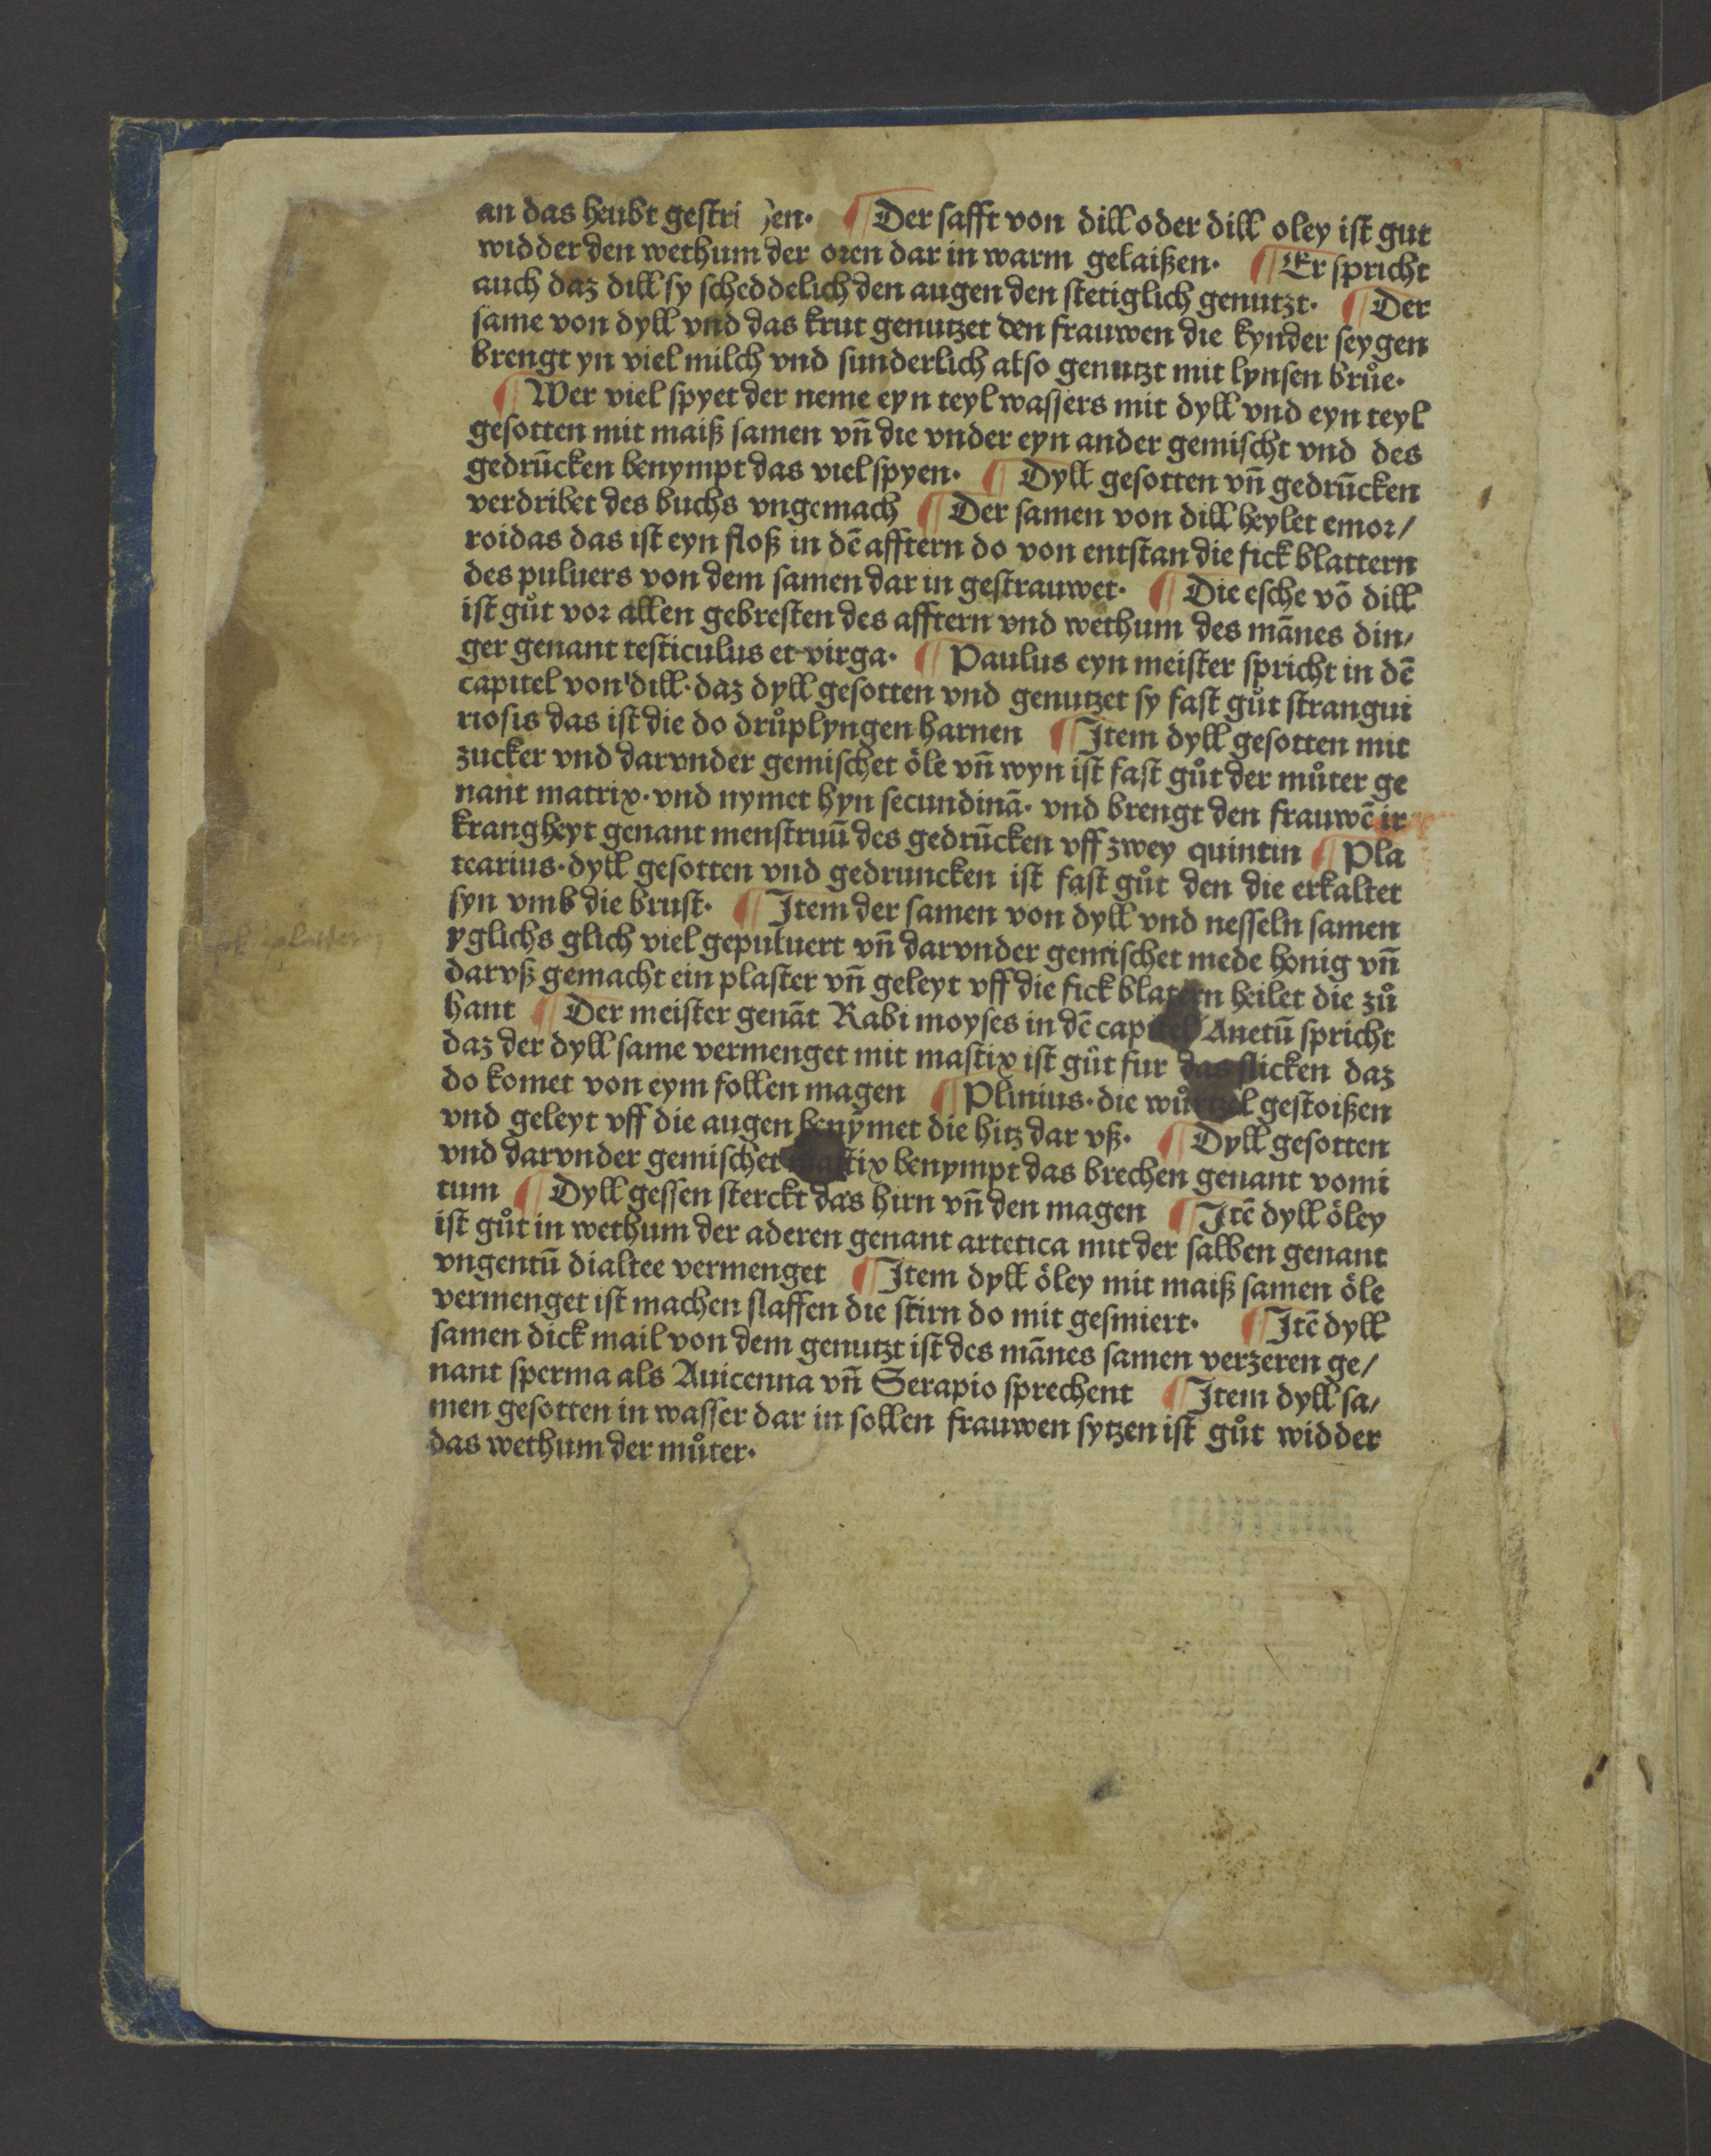 an das heubt gestri en. ¶ Der safft von dill oder dill oley ist gut
widder den wethum der oren dar in warm gelaißen. ¶ Er spricht
auch daz dill sy scheddelich den augen den stetiglich genutzt. ¶ Der
same von dyll vnd das krut genutzet den frauwen die kynder seygen
brengt yn viel milch vnd sunderlich also genutzt mit lynsen brůe.
¶ Wer viel spyet der neme eyn teyl wassers mit dyll vnd eyn teyl
gesotten mit maiß samen vñ die vnder eyn ander gemischt vnd des
gedrūcken benympt das viel spyen. ¶ Dyll gesotten vñ gedrūcken
verdribet des buchs vngemach ¶ Der samen von dill heylet emor/
roidas das ist eyn floß in dē afftern do von entstan die fick blattern
des puluers von dem samen dar in gestrauwet. ¶ Die esche vō dill
ist gůt vor allen gebresten des afftern vnd wethum des mānes din/
ger genant testiculus et virga. ¶ Paulus eyn meister spricht in dē
capitel von dill. daz dyll gesotten vnd genutzet sy fast gůt strangui
riosis das ist die do drůplyngen harnen ¶ Item dyll gesotten mit
zucker vnd darvnder gemischet öle vñ wyn ist fast gůt der můter ge
nant matrix. vnd nymet hyn secundinā. vnd brengt den frauwē ir
krangheyt genant menstruū des gedrūcken vff zwey quintin ¶ Pla
tearius. dyll gesotten vnd gedruncken ist fast gůt den die erkaltet
syn vmb die brust. ¶ Item der samen von dyll vnd nesseln samen
yglichs glich viel gepuluert vñ darvnder gemischet mede honig vñ
darvß gemacht ein plaster vñ geleyt vff die fick blatern heilet die zů
hant ¶ Der meister genāt Rabi moyses in dē capitel Anetū spricht
daz der dyll same vermenget mit mastix ist gůt fur das slicken daz
do komet von eym follen magen ¶ Plinius. die wůrtzel gestoißen
vnd geleyt vff die augen benymet die hitz dar vß. ¶ Dyll gesotten
vnd darvnder gemischet mastix benympt das brechen genant vomi
tum ¶ Dyll gessen sterckt das hirn vñ den magen ¶ Itē dyll öley
ist gůt in wethum der aderen genant artetica mit der salben genant
vngentū dialtee vermenget ¶ Item dyll öley mit maiß samen öle
vermenget ist machen slaffen die stirn do mit gesmiert. ¶ Itē dyll
samen dick mail von dem genutzt ist des mānes samen verzeren ge/
nant sperma als Auicenna vñ Serapio sprechent ¶ Item dyll sa/
men gesotten in wasser dar in sollen frauwen sytzen ist gůt widder
das wethum der můter.